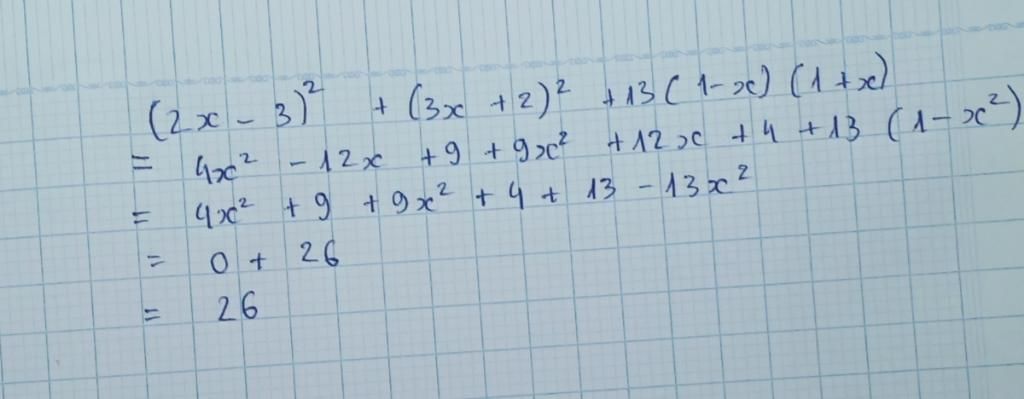 (2x - 3)² + (3x + 2)² + 13(1-x)(1+x)
= 4x² - 12x + 9 + 9x² + 12x + 4 + 13(1-x²)
= 4x² + 9 + 9x² + 4 + 13 - 13x²
= 0 + 26
= 26